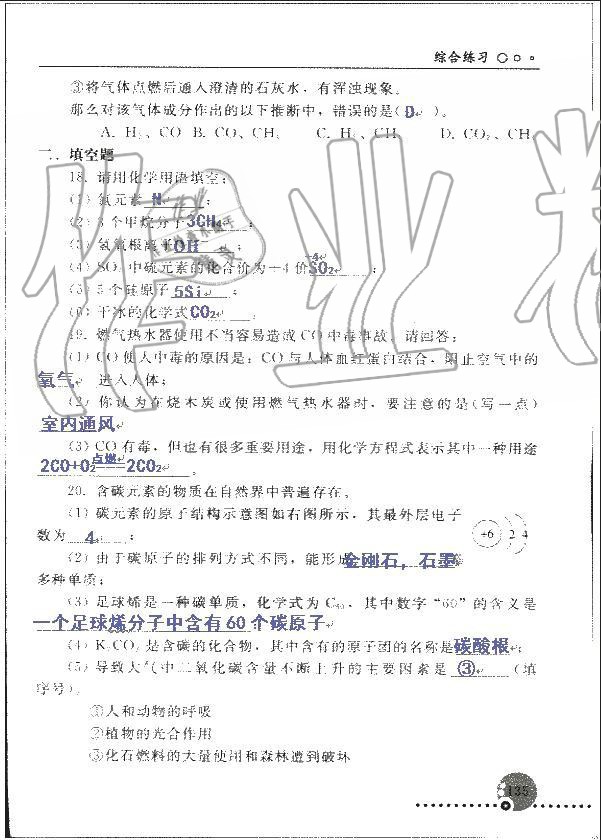 综合练习
③将气体点燃后通入澄清的石灰水，有浑浊现象。
那么对该气体成分作出的以下推断中，错误的是(D)。
A. H₂、CO B. CO、CH₄ C. H₂、CH₄ D. CO₂、CH
二、填空题
18. 请用化学用语填空：
(1) 氮元素 N ；
(2) 3个甲烷分子3CH₄ ；
(3) 氢氧根离子OH ；
(4) SO₂ 中硫元素的化合价为+4价SO₂ ；
(5) 5个硅原子 5Si ；
(6) 干冰的化学式CO₂ 。
19. 燃气热水器使用不当容易造成CO中毒事故。请回答：
(1) CO使人中毒的原因是：CO与人体血红蛋白结合，阻止空气中的
氧气 进入人体；
(2) 你认为在烧木炭或使用燃气热水器时，要注意的是(写一点)
室内通风
(3) CO有毒，但也有很多重要用途，用化学方程式表示其中一种用途
2CO+O₂ 点燃 2CO₂ 。
20. 含碳元素的物质在自然界中普遍存在。
(1) 碳元素的原子结构示意图如右图所示，其最外层电子
数为 4 ；
+6 2 4
(2) 由于碳原子的排列方式不同，能形成金刚石，石墨等
多种单质；
(3) 足球烯是一种碳单质，化学式为C₆₀，其中数字“60”的含义是
一个足球烯分子中含有60个碳原子
(4) K₂CO₃ 是含碳的化合物，其中含有的原子团的名称是碳酸根；
(5) 导致大气中二氧化碳含量不断上升的主要因素是 ③ (填
序号)。
①人和动物的呼吸
②植物的光合作用
③化石燃料的大量使用和森林遭到破坏
135